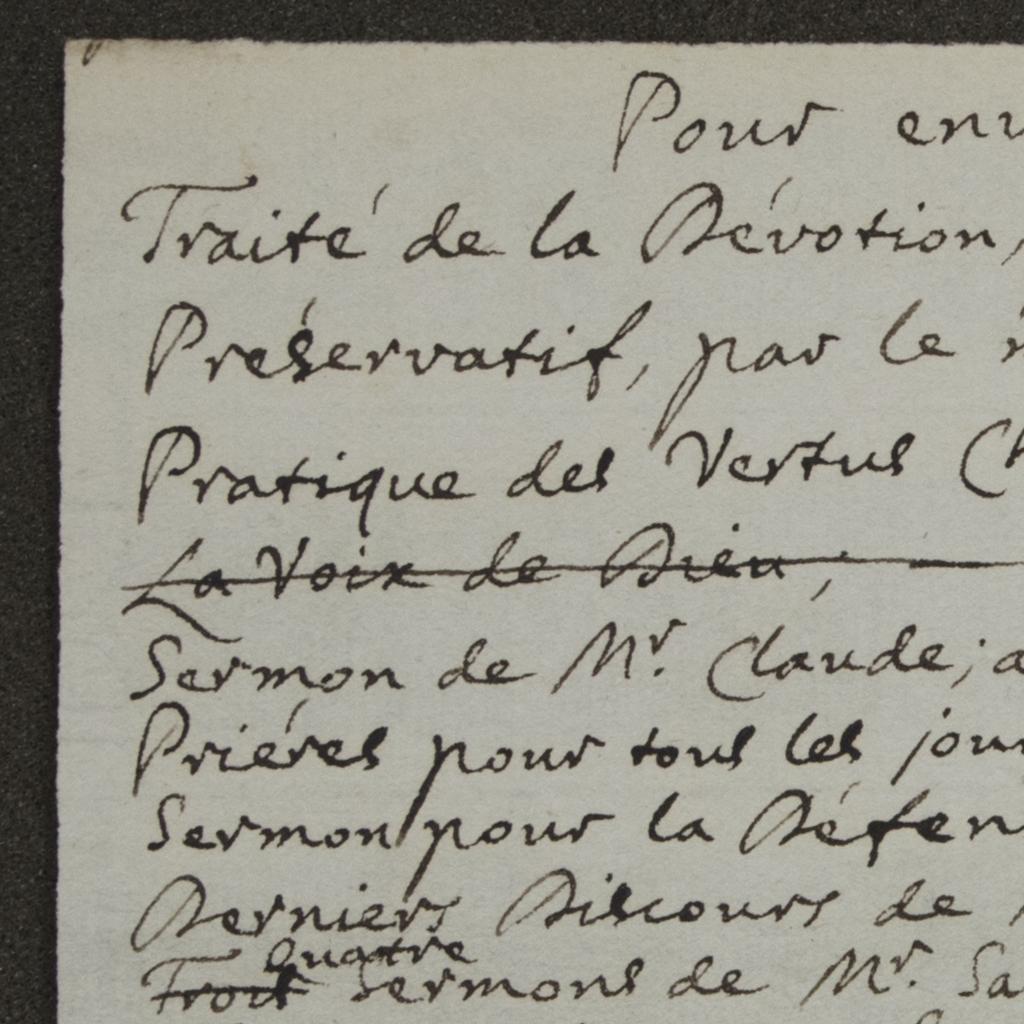 Pour env
Traité de la Dévotion,
Préservatif, par le
Pratique des Vertus Ch
La Voix de Dieu,
Sermon de Mr. Claude; a
Priéres pour tous les jour
Sermon pour la Défen
Derniers Discours de
Quatre
Trois Sermons de Mr. Sa